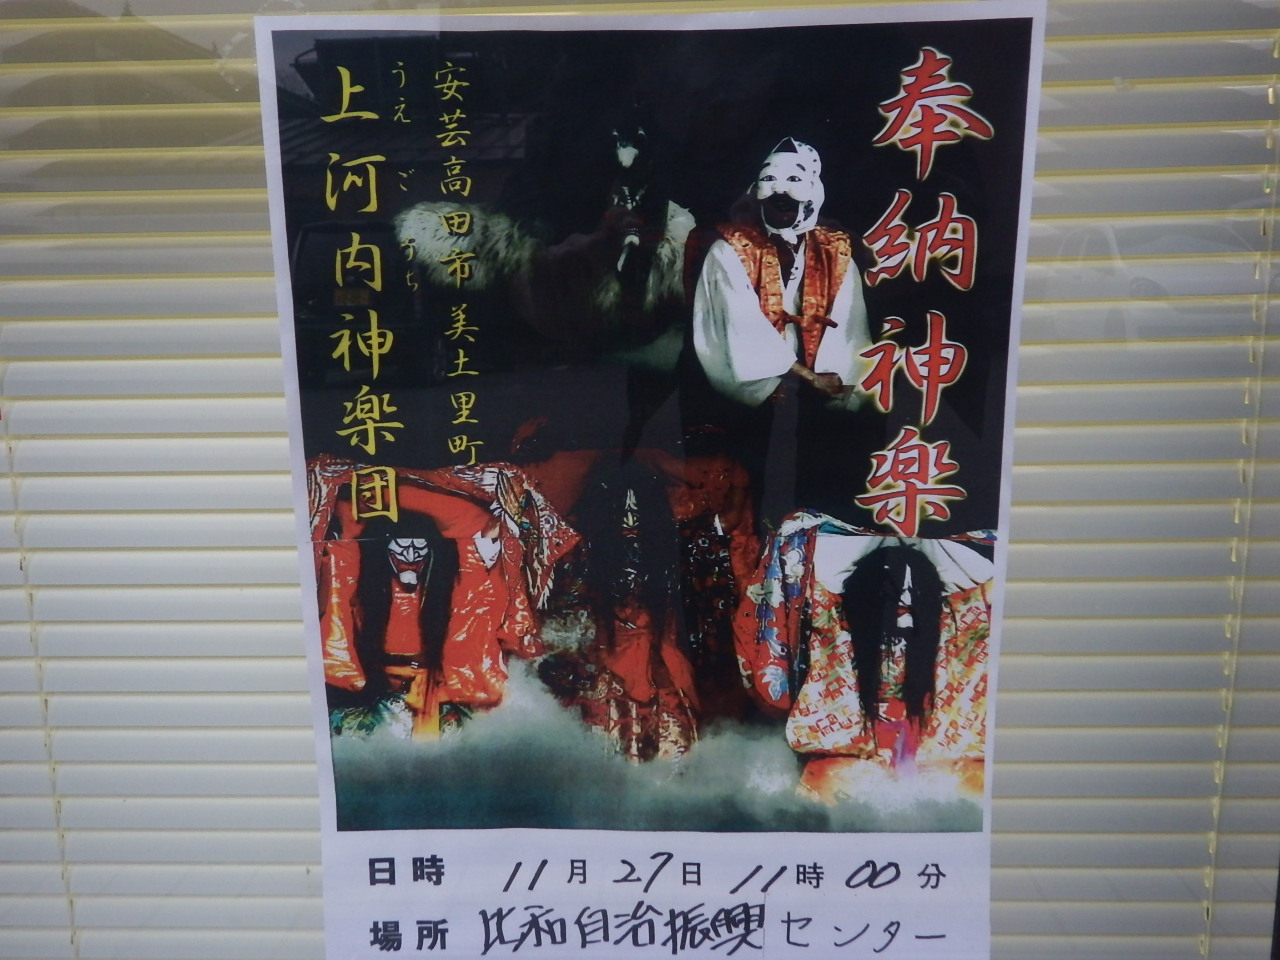 奉納神楽
安芸高田市美土里町
うえごうち
上河内神楽団
日時 11月27日 11時00分
場所 比和自治振興センター